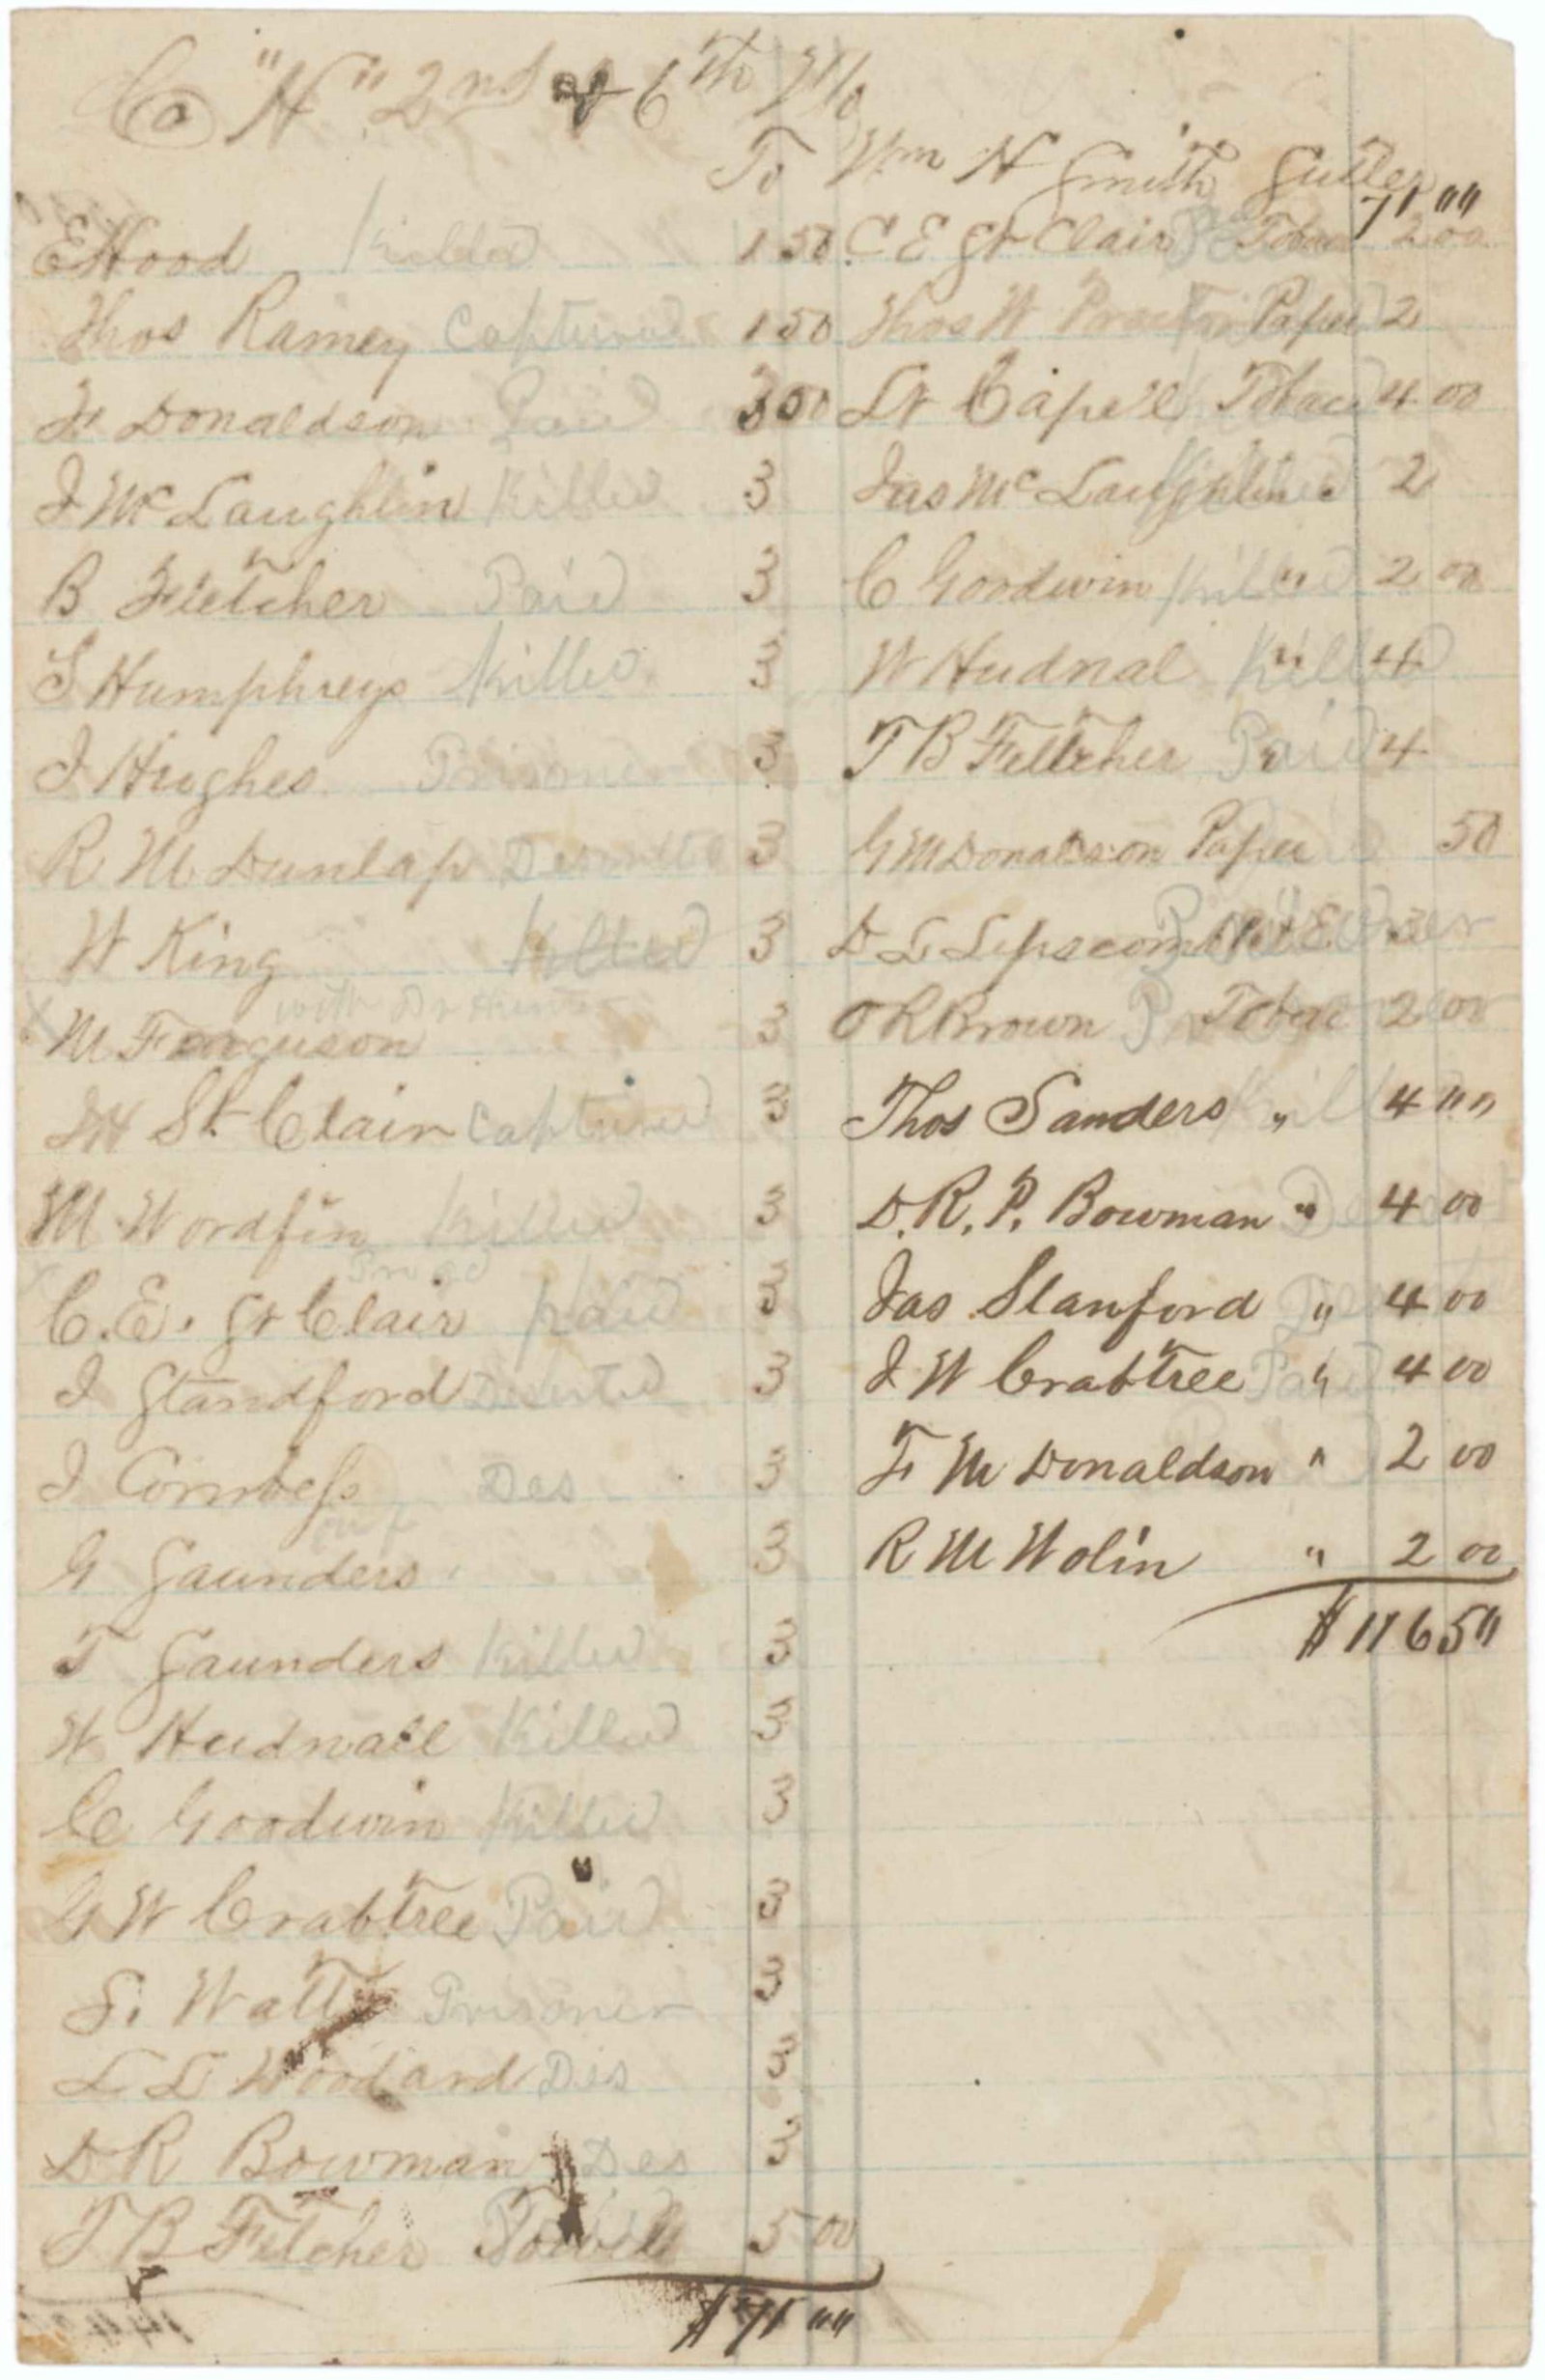 Co "H" 2nd & 6th Mo
To Wm H Smith Sutler
E Hood Killed 1 50
Thos Ramey Captured 1 50
F Donaldson Paid 3 00
J Mc Laughlin Killed 3
B Fletcher Paid 3
S Humphreys Killed 3
J Hughes Prisoner 3
R M Dunlap Deserted 3
W King Killed 3
with Dr Hunter
M Ferguson 3
J H St. Clair Captured 3
M Wordfin Killed 3
C. E. St Clair paid 3
J Standford Deserted 3
J Cornbess Des 3
G Saunders 3
T Saunders Killed 3
W Hudnall Killed 3
C Goodwin Killed 3
G W Crabtree Paid 3
S. Watts Prisoner 3
L L Woodard Des 3
D R Bowman Des 3
T B Fletcher 5 00
$ 71 ""
71 ""
C E St Clair Tobac 2 00
Thos W Paper 2
Lt Capell Tobac 4 00
Jas Mc Laughlin Killed " 2
C Goodwin Killed " 2 00
W Hudnal Killed " 4
T B Fletcher Paid " 4
G M Donaldson Paper 50
D L Lipscomb Prisoner 3
O R Brown Tobac 2 00
Thos Sanders " Killed 4 ""
D. R. P. Bowman " Desert 4 00
Jas Stanford " 4 00
J W Crabtree " Paid 4 00
F M Donaldson " 2 00
R M Wolin " 2 00
$ 116 5"